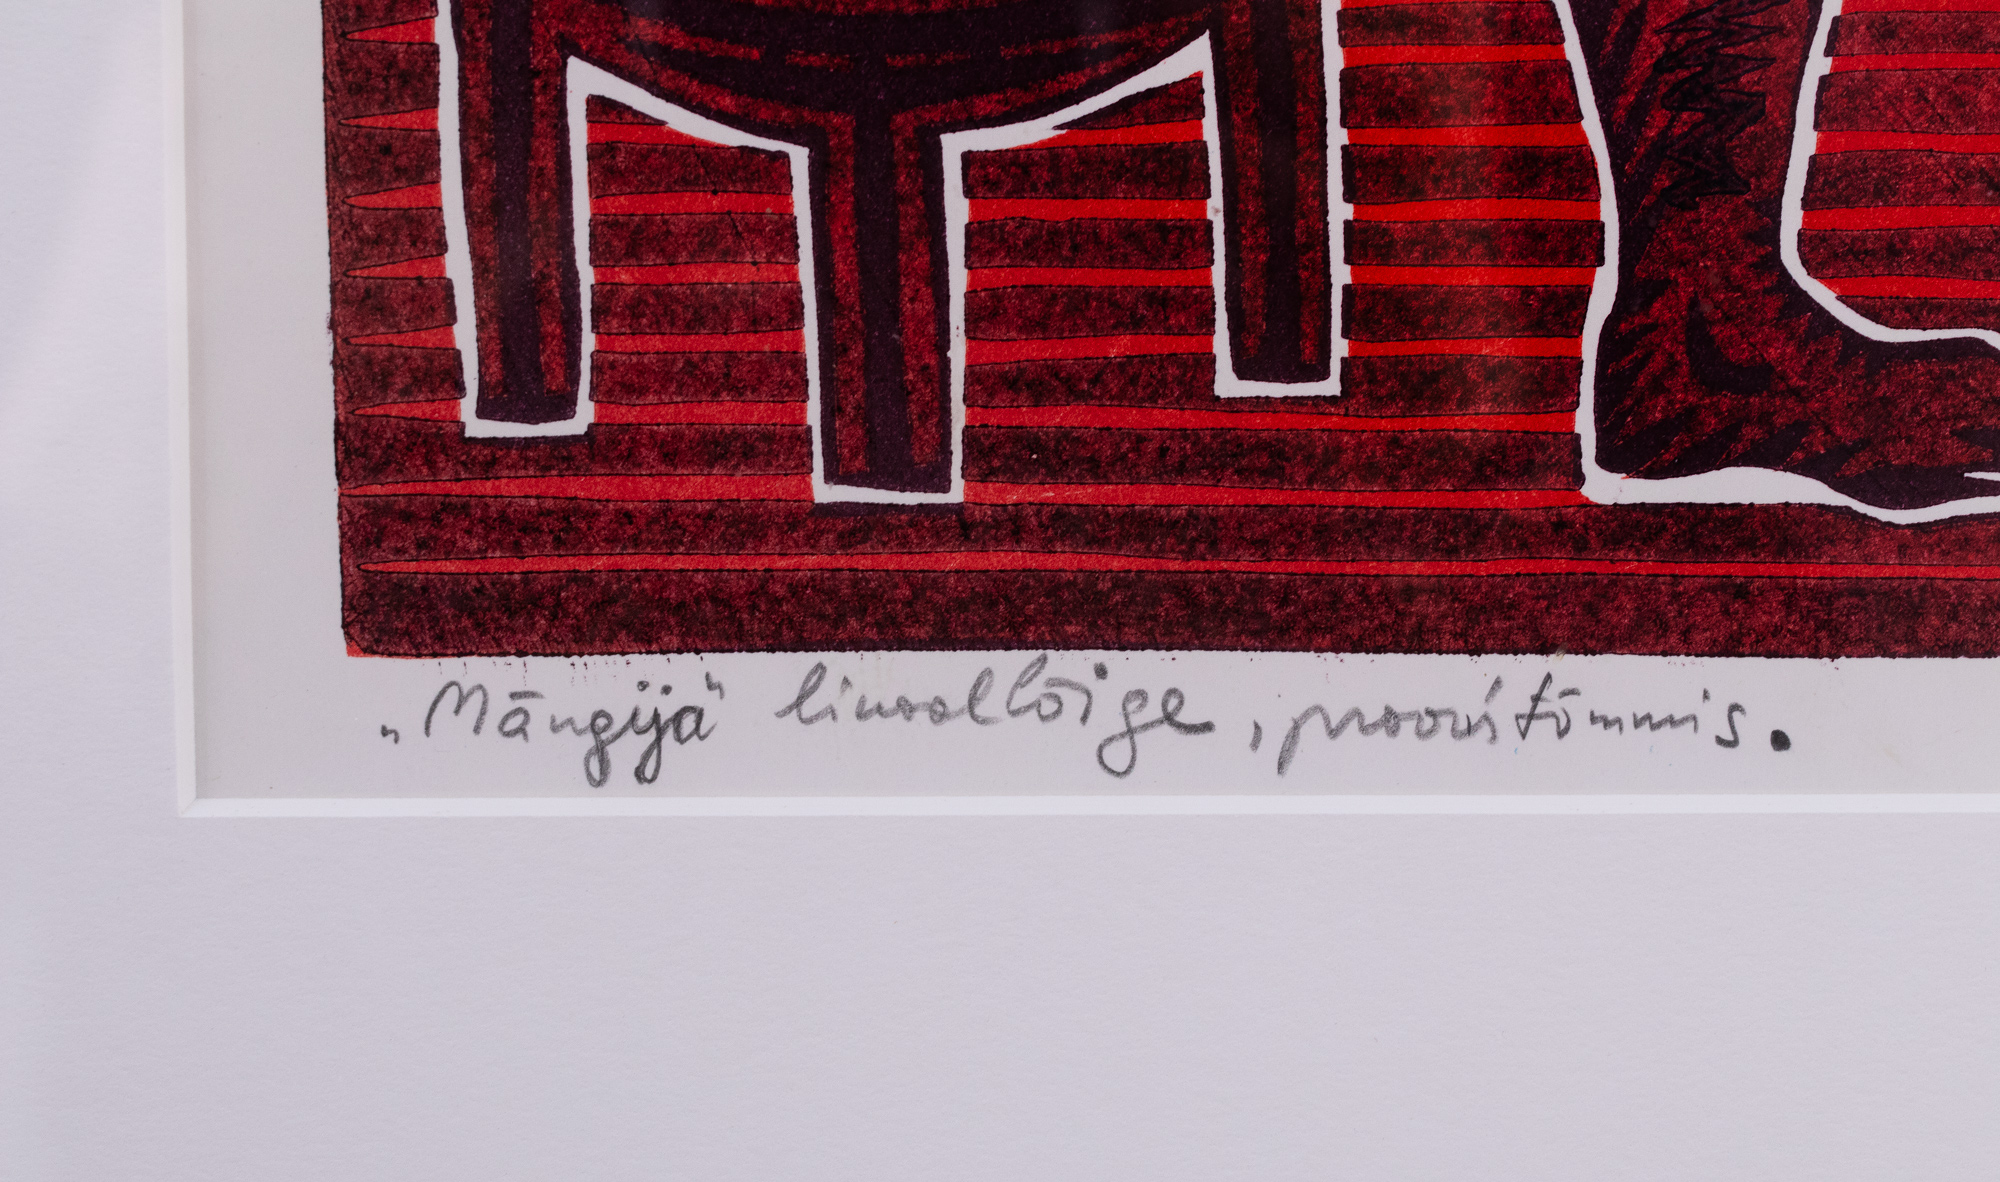 „Mängija” linoollõige, proovitõmmis.